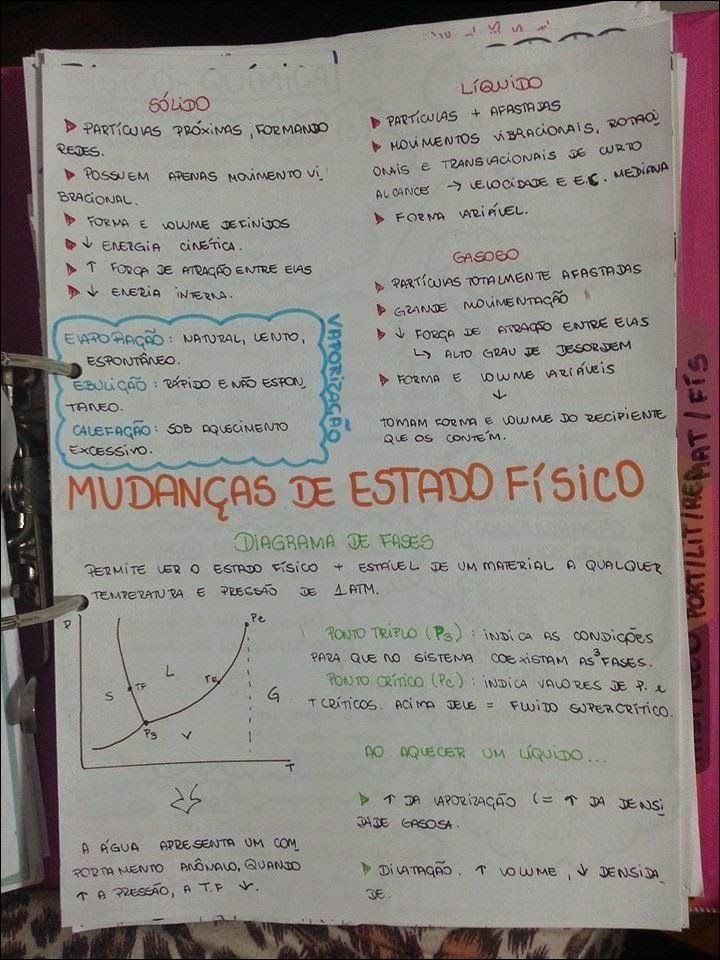 SÓLIDO
▶ PARTÍCULAS PRÓXIMAS, FORMANDO
REDES.
▶ POSSUEM APENAS MOVIMENTO VI
BRACIONAL.
▶ FORMA E VOLUME DEFINIDOS
▶ ↓ ENERGIA CINÉTICA.
▶ ↑ FORÇA DE ATRAÇÃO ENTRE ELAS
▶ ↓ ENERIA INTERNA.
LÍQUIDO
▶ PARTÍCULAS + AFASTADAS
▶ MOVIMENTOS VIBRACIONAIS, ROTACI
ONAIS E TRANSLACIONAIS DE CURTO
ALCANCE → VELOCIDADE E E.C. MEDIANA
▶ FORMA VARIÁVEL.
GASOSO
▶ PARTÍCULAS TOTALMENTE AFASTADAS
▶ GRANDE MOVIMENTAÇÃO
▶ ↓ FORÇA DE ATRAÇÃO ENTRE ELAS
↳ ALTO GRAU DE DESORDEM
▶ FORMA E VOLUME VARIÁVEIS
↓
TOMAM FORMA E VOLUME DO RECIPIENTE
QUE OS CONTÉM.
EVAPORAÇÃO: NATURAL, LENTO,
ESPONTÂNEO.
EBULIÇÃO: RÁPIDO E NÃO ESPON
TANEO.
CALEFAÇÃO: SOB AQUECIMENTO
EXCESSIVO.
VAPORIZAÇÃO
MUDANÇAS DE ESTADO FÍSICO
DIAGRAMA DE FASES
PERMITE VER O ESTADO FÍSICO + ESTÁVEL DE UM MATERIAL A QUALQUER
TEMPERATURA E PRESSÃO DE 1 ATM.
P
Pc
S
TF
L
TE
G
P3
V
T
PONTO TRIPLO (P3): INDICA AS CONDIÇÕES
PARA QUE NO SISTEMA COEXISTAM AS 3 FASES.
PONTO CRÍTICO (Pc): INDICA VALORES DE P. e
T CRÍTICOS. ACIMA DELE = FLUIDO SUPERCRÍTICO.
A ÁGUA APRESENTA UM COM
PORTAMENTO ANÔMALO, QUANDO
↑ A PRESSÃO, A T.F ↓.
AO AQUECER UM LÍQUIDO...
▶ ↑ DA VAPORIZAÇÃO (= ↑ DA DENSI
DADE GASOSA.
▶ DILATAÇÃO. ↑ VOLUME, ↓ DENSIDA
DE.
PORT/LIT/RED
MAT/FÍS